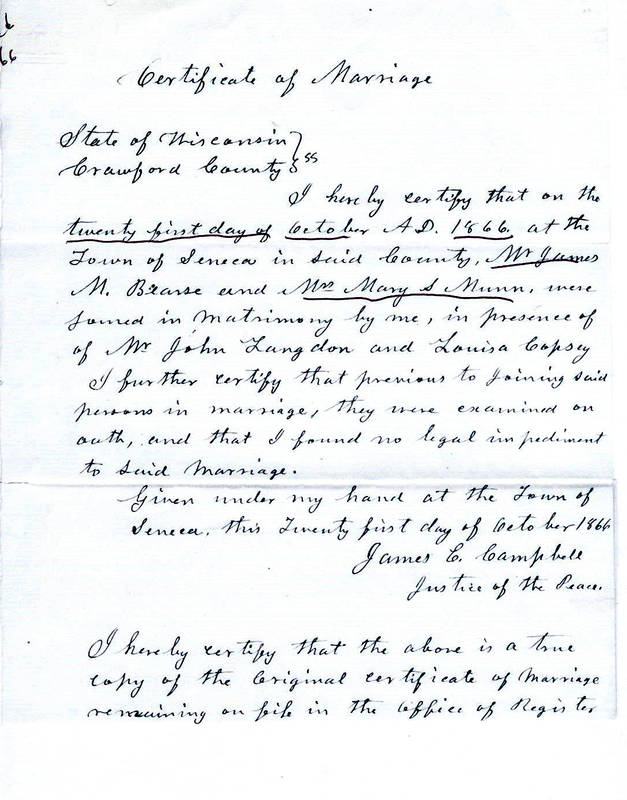 6
66
Certificate of Marriage
State of Wisconsin }
Crawford County } ss
I hereby certify that on the
twenty first day of October A.D. 1866. at the
Town of Seneca in said County, Mr James
M. Bearse and Mrs Mary S Munn, were
joined in matrimony by me, in presence of
of Mr John Langdon and Louisa Copsey
I further certify that previous to joining said
persons in marriage, they were examined on
oath, and that I found no legal impediment
to said marriage.
Given under my hand at the Town of
Seneca, this Twenty first day of October 1866
James C. Campbell
Justice of the Peace.
I hereby certify that the above is a true
copy of the Original certificate of Marriage
remaining on file in the office of Register